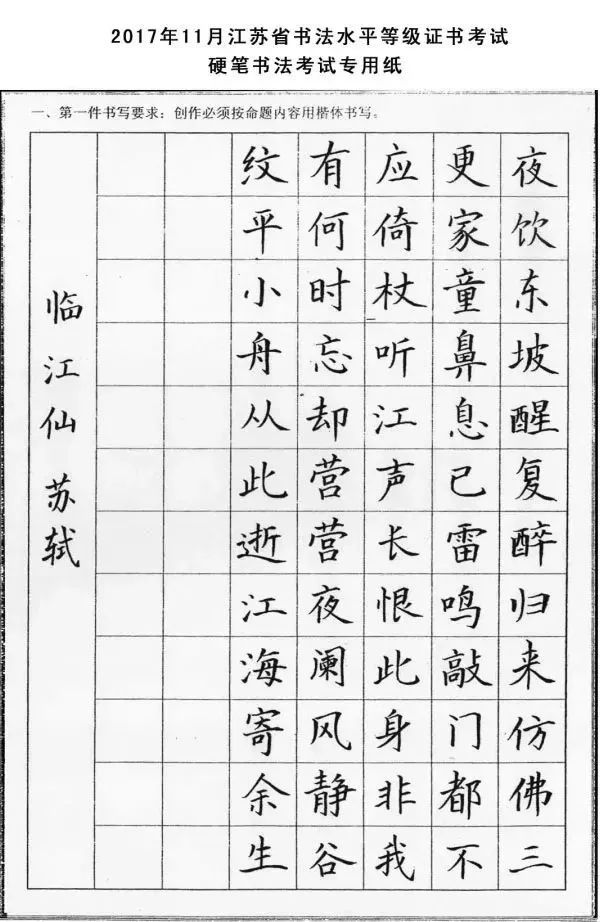 2017年11月江苏省书法水平等级证书考试
硬笔书法考试专用纸
一、第一件书写要求：创作必须按命题内容用楷体书写。
夜饮东坡醒复醉归来仿佛三
更家童鼻息已雷鸣敲门都不
应倚杖听江声长恨此身非我
有何时忘却营营夜阑风静谷
纹平小舟从此逝江海寄余生
临江仙 苏轼